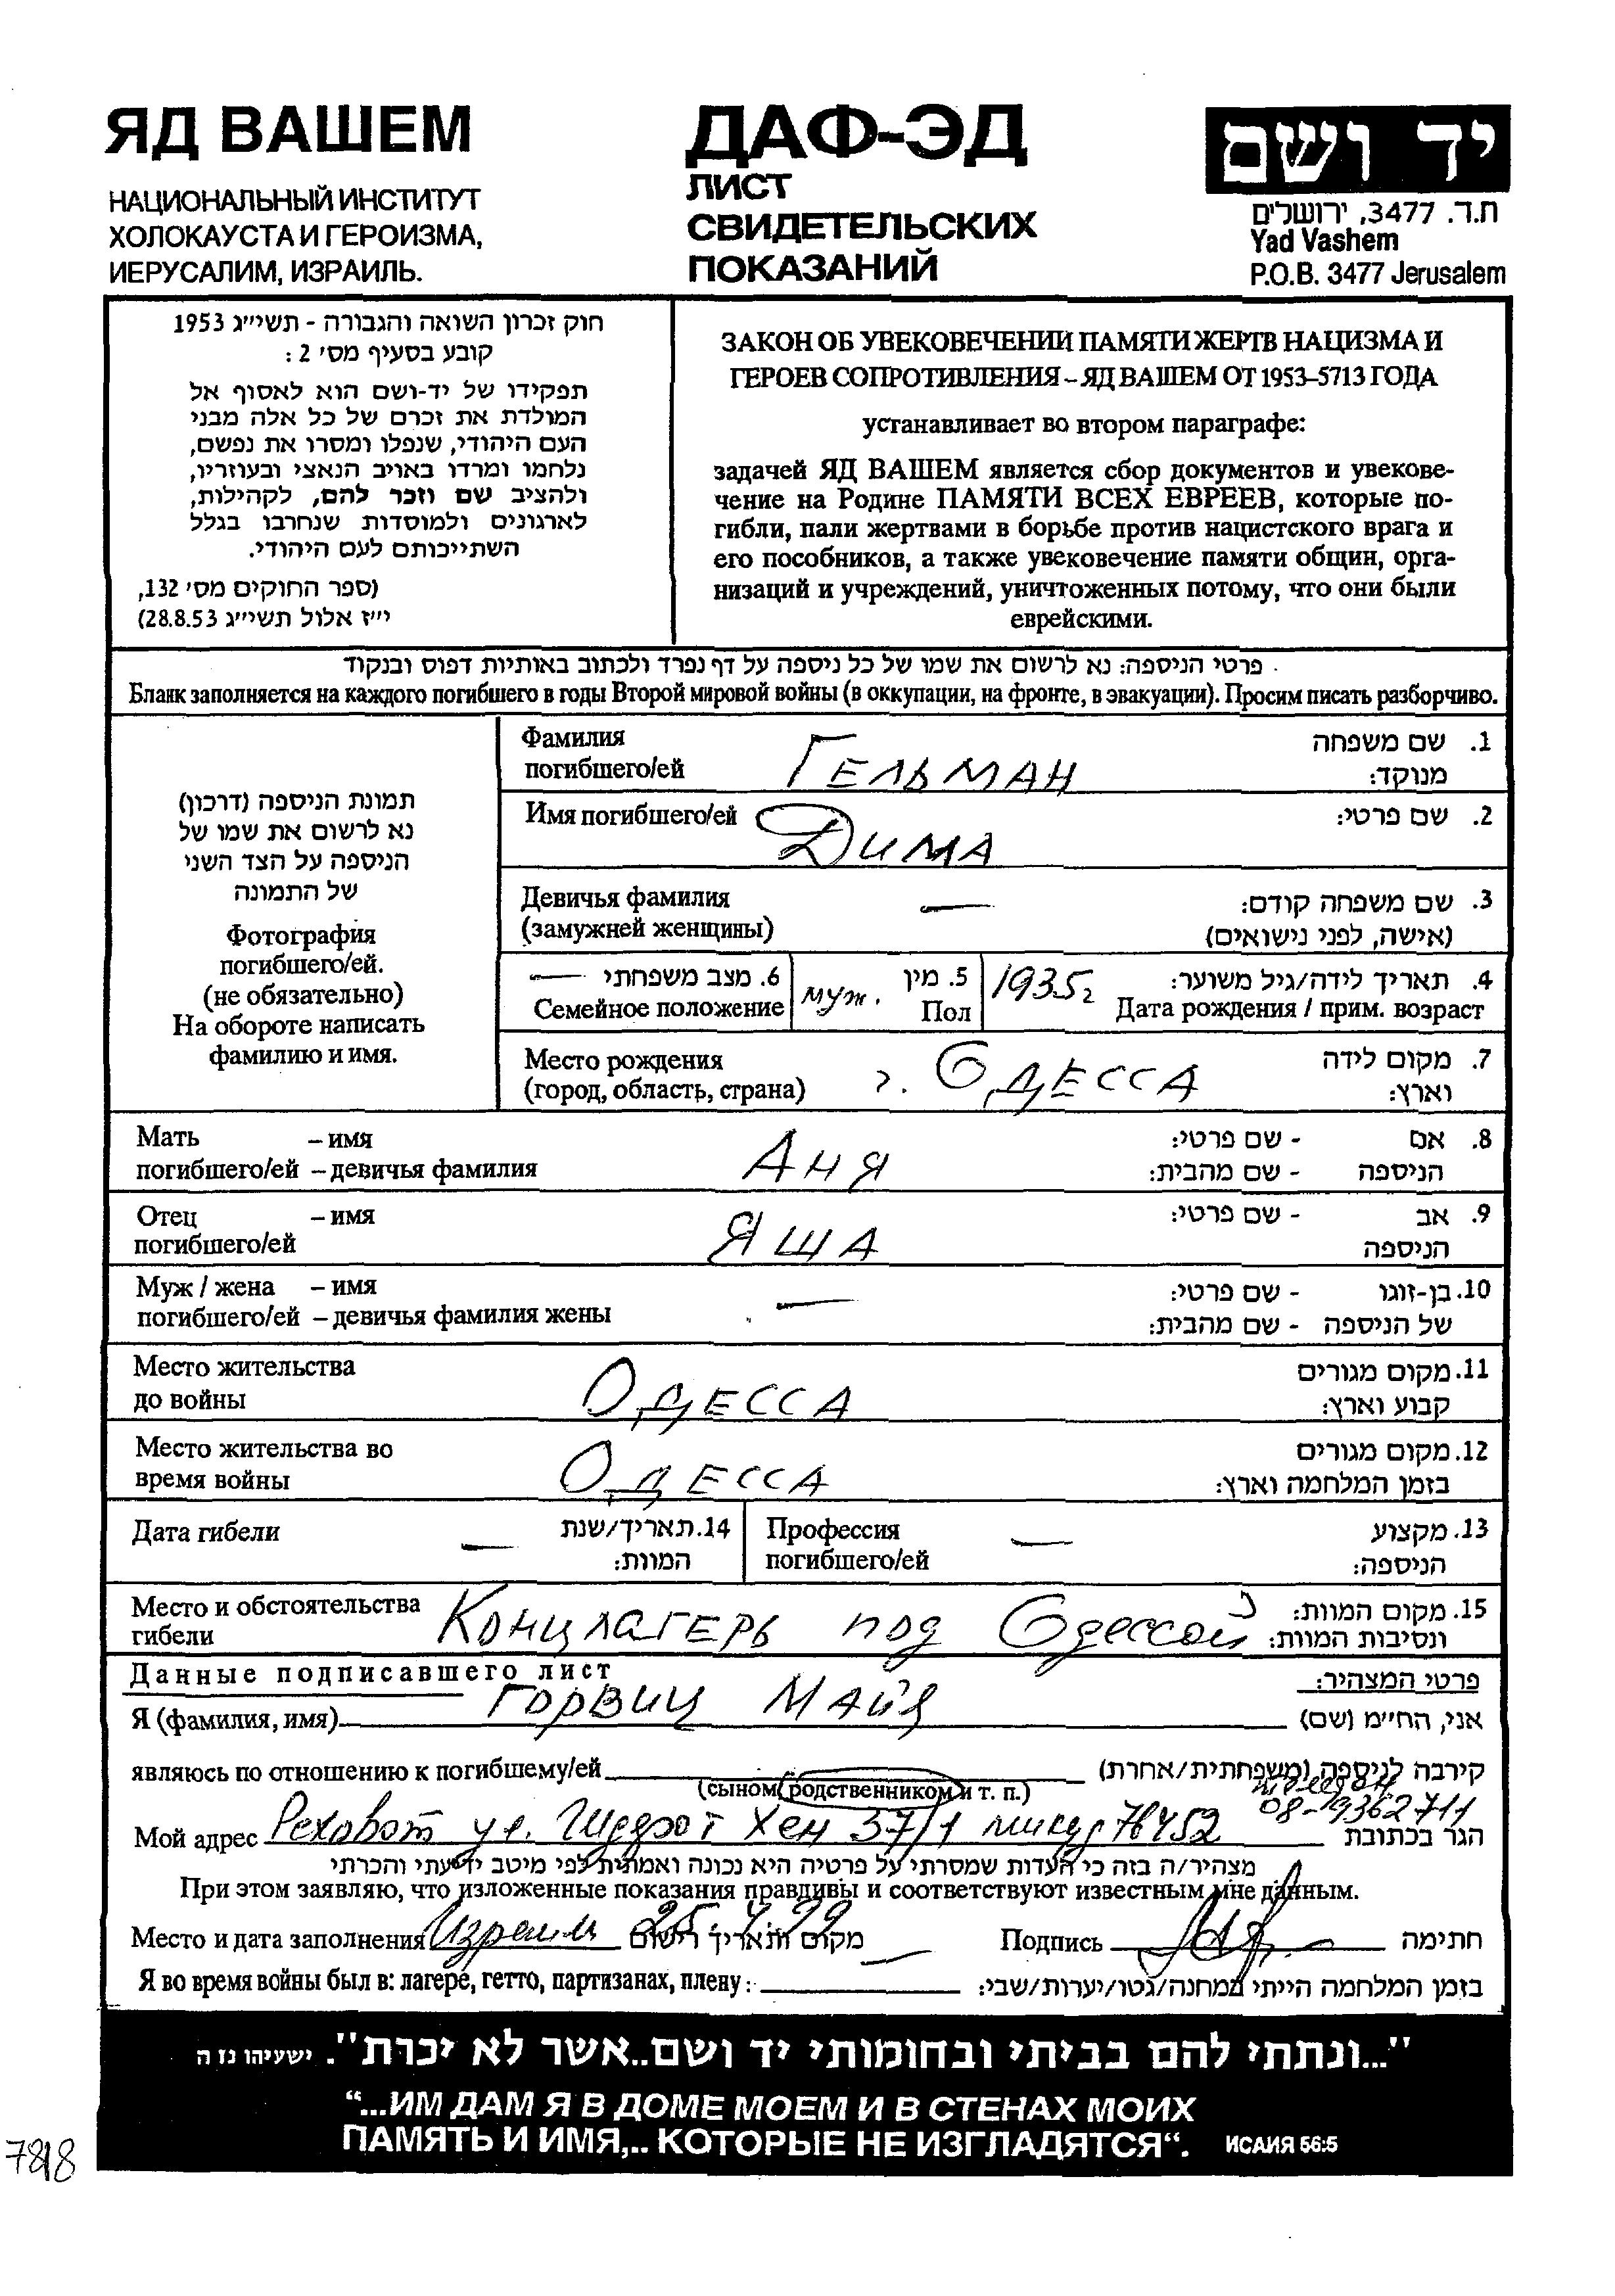 ЯД ВАШЕМ
НАЦИОНАЛЬНЫЙ ИНСТИТУТ
ХОЛОКАУСТА И ГЕРОИЗМА,
ИЕРУСАЛИМ, ИЗРАИЛЬ.
ДАФ-ЭД
ЛИСТ
СВИДЕТЕЛЬСКИХ
ПОКАЗАНИЙ
יד ושם
ת.ד. 3477, ירושלים
Yad Vashem
P.O.B. 3477 Jerusalem
חוק זכרון השואה והגבורה - תשי״ג 1953
קובע בסעיף מס׳ 2 :
תפקידו של יד-ושם הוא לאסוף אל
המולדת את זכרם של כל אלה מבני
העם היהודי, שנפלו ומסרו את נפשם,
נלחמו ומרדו באויב הנאצי ובעוזריו,
ולהציב שם וזכר להם, לקהילות,
לארגונים ולמוסדות שנחרבו בגלל
השתייכותם לעם היהודי.
(ספר החוקים מס׳ 132,
י״ז אלול תשי״ג 28.8.53)
ЗАКОН ОБ УВЕКОВЕЧЕНИИ ПАМЯТИ ЖЕРТВ НАЦИЗМА И
ГЕРОЕВ СОПРОТИВЛЕНИЯ – ЯД ВАШЕМ ОТ 1953–5713 ГОДА
устанавливает во втором параграфе:
задачей ЯД ВАШЕМ является сбор документов и увекове-
чение на Родине ПАМЯТИ ВСЕХ ЕВРЕЕВ, которые по-
гибли, пали жертвами в борьбе против нацистского врага и
его пособников, а также увековечение памяти общин, орга-
низаций и учреждений, уничтоженных потому, что они были
еврейскими.
פרטי הניספה: נא לרשום את שמו של כל ניספה על דף נפרד ולכתוב באותיות דפוס ובנקוד
Бланк заполняется на каждого погибшего в годы Второй мировой войны (в оккупации, на фронте, в эвакуации). Просим писать разборчиво.
תמונת הניספה (דרכון)
נא לרשום את שמו של
הניספה על הצד השני
של התמונה
Фотография
погибшего/ей.
(не обязательно)
На обороте написать
фамилию и имя.
Фамилия ГЕЛЬМАН 1. שם משפחה
погибшего/ей מנוקד:
Имя погибшего/ей ДИМА 2. שם פרטי:
Девичья фамилия — 3. שם משפחה קודם:
(замужней женщины) (אישה, לפני נישואים)
— 6. מצב משפחתי муж. 5. מין 1935г 4. תאריך לידה/גיל משוער:
Семейное положение Пол Дата рождения / прим. возраст
Место рождения г. ОДЕССА 7. מקום לידה
(город, область, страна) וארץ:
Мать – имя АНЯ - שם פרטי: 8. אם
погибшего/ей – девичья фамилия - שם מהבית: הניספה
Отец – имя ЯША - שם פרטי: 9. אב
погибшего/ей הניספה
Муж / жена – имя — - שם פרטי: 10. בן-זוגו
погибшего/ей – девичья фамилия жены - שם מהבית: של הניספה
Место жительства ОДЕССА 11. מקום מגורים
до войны קבוע וארץ:
Место жительства во ОДЕССА 12. מקום מגורים
время войны בזמן המלחמה וארץ:
Дата гибели — 14. תאריך/שנת Профессия — 13. מקצוע
המוות: погибшего/ей הניספה:
Место и обстоятельства КОНЦЛАГЕРЬ под Одессой 15. מקום המוות:
гибели ונסיבות המוות:
Данные подписавшего лист פרטי המצהיר:
Я (фамилия, имя) ГОРВИЦ МАЙЯ אני, החי״מ (שם)
являюсь по отношению к погибшему/ей קירבה לניספה (משפחתית/אחרת)
(сыном, родственником и т. п.)
08-9362711
Мой адрес Реховот ул. Шдерот Хен 37/1 76452 הגר בכתובת
מצהיר/ה בזה כי העדות שמסרתי על פרטיה היא נכונה ואמתית לפי מיטב ידיעתי והכרתי
При этом заявляю, что изложенные показания правдивы и соответствуют известным мне данным.
Место и дата заполнения Израиль 25.4.99 מקום ותאריך רישום Подпись חתימה
Я во время войны был в: лагере, гетто, партизанах, плену: — בזמן המלחמה הייתי במחנה/גטו/יערות/שבי:
"...ונתתי להם בביתי ובחומותי יד ושם..אשר לא יכרת". ישעיהו נו ה
“...ИМ ДАМ Я В ДОМЕ МОЕМ И В СТЕНАХ МОИХ
ПАМЯТЬ И ИМЯ,.. КОТОРЫЕ НЕ ИЗГЛАДЯТСЯ“. ИСАИЯ 56:5